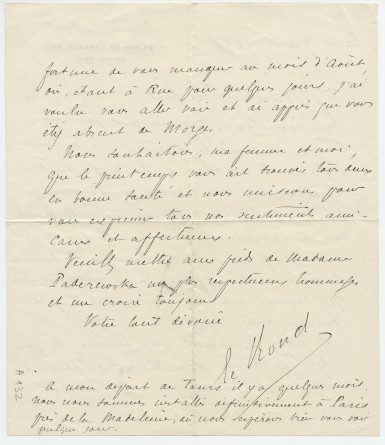 fortune de vous manquer au mois d'Août
où, étant à Rue pour quelques jours, j'ai
voulu vous aller voir et ai appris que vous
étiez absent de Morges.
Nous souhaitons, ma femme et moi,
que le printemps vous ait trouvés tous deux
en bonne santé et nous unissons pour
vous exprimer tous nos sentiments ami-
caux et affectueux.
Veuillez mettre aux pieds de Madame
Paderewska mes plus respectueux hommages
et me croire toujours
Votre tout dévoué
le Rond
A mon départ de Tours il y a quelques mois,
nous nous sommes installés définitivement à Paris
près de la Madeleine, où nous espérons bien vous voir
quelque jour.
A 432